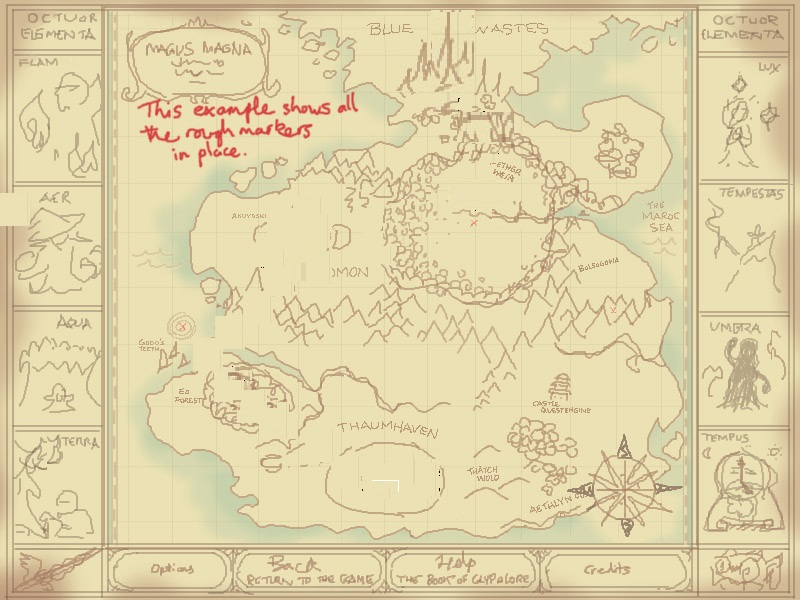 OCTUOR
ELEMENTA
FLAM
AER
AQUA
TERRA
MAGUS MAGNA
This example shows all
the rough markers
in place.
BLUE WASTES
AETHER
WEIR
THE
MAROC
SEA
AKUYOSHI
OMON
BOLSOGONIA
GODO'S
TEETH
ED
FOREST
CASTLE
QUESTENGINE
THAUMHAVEN
THATCH
WOLD
AETHLYN
OCTUOR
ELEMENTA
LUX
TEMPESTAS
UMBRA
TEMPUS
Options
Back
RETURN TO THE GAME
Help
THE BOOK OF GLYPHLORE
Credits